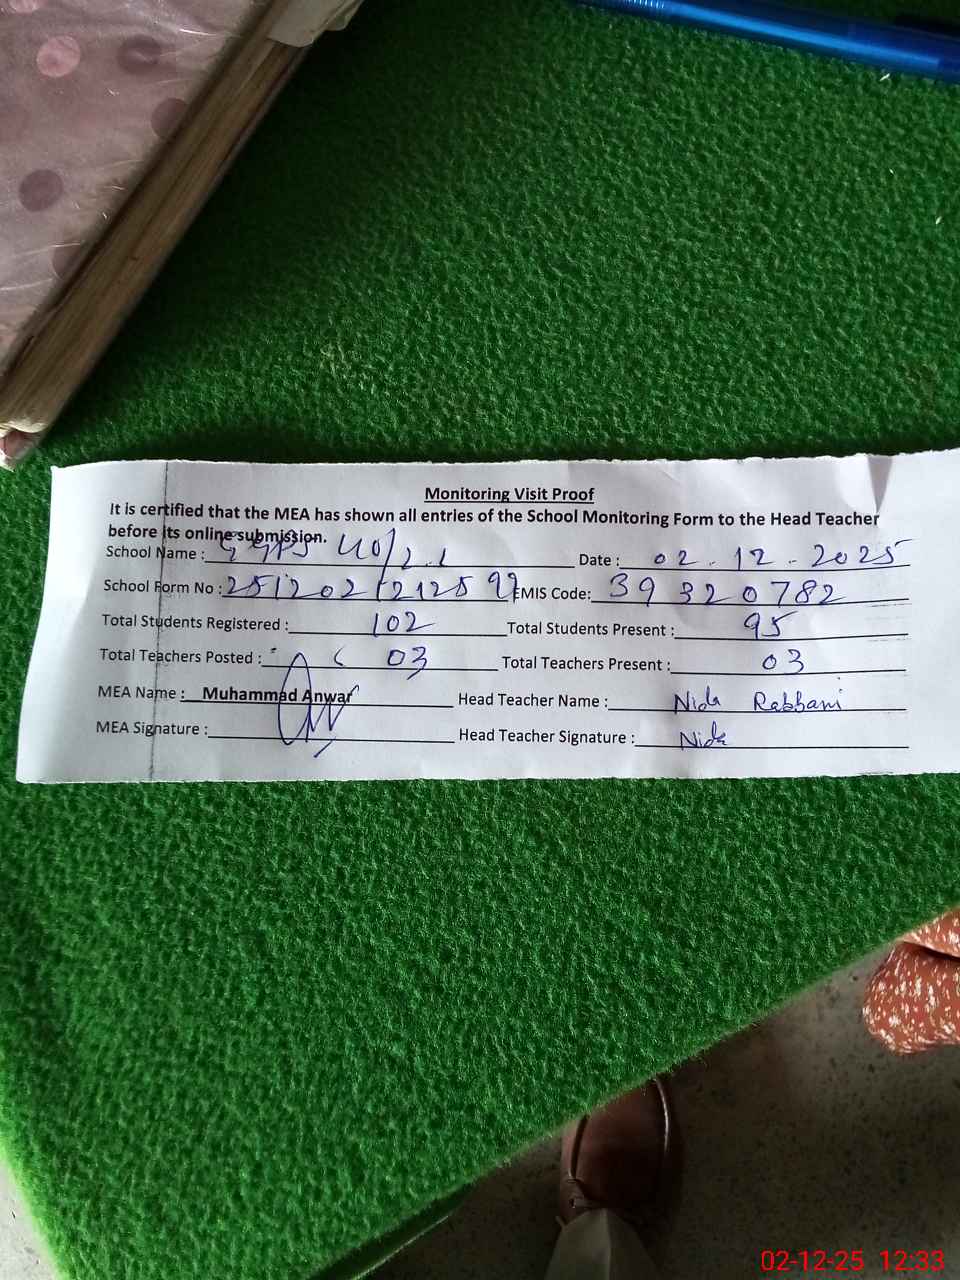 Monitoring Visit Proof
It is certified that the MEA has shown all entries of the School Monitoring Form to the Head Teacher
before its online submission.
School Name : GGPS 40/2.L Date : 02.12.2025
School Form No : EMIS Code: 39320782
Total Students Registered : 102 Total Students Present : 95
Total Teachers Posted : 03 Total Teachers Present : 03
MEA Name : Muhammad Anwar Head Teacher Name : Nida Rabbani
MEA Signature : Head Teacher Signature : Nida
02-12-25 12:33